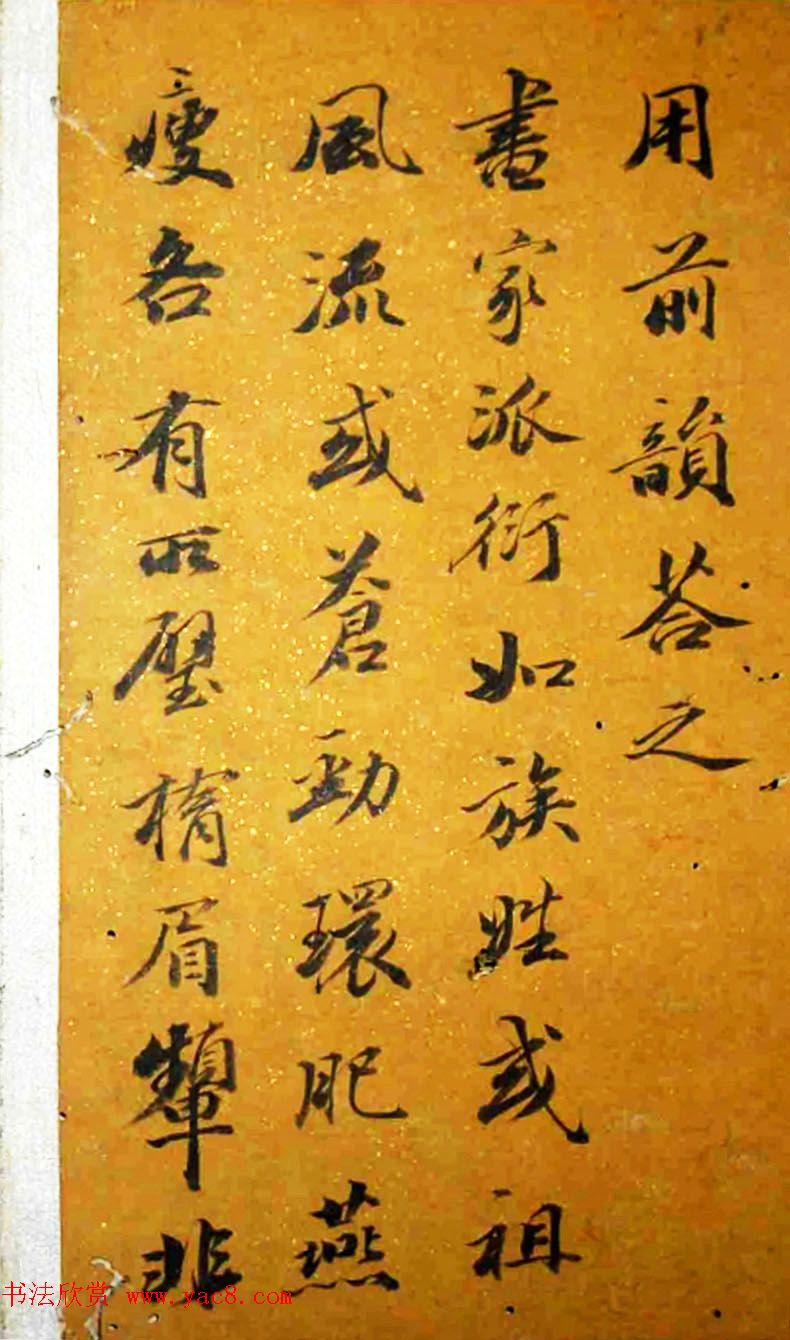 用前韻荅之
畫家派衍如族姓或祖
風流或蒼勁環肥燕
瘦各有所壓橢眉顰非
书法欣赏 www.yac8.com